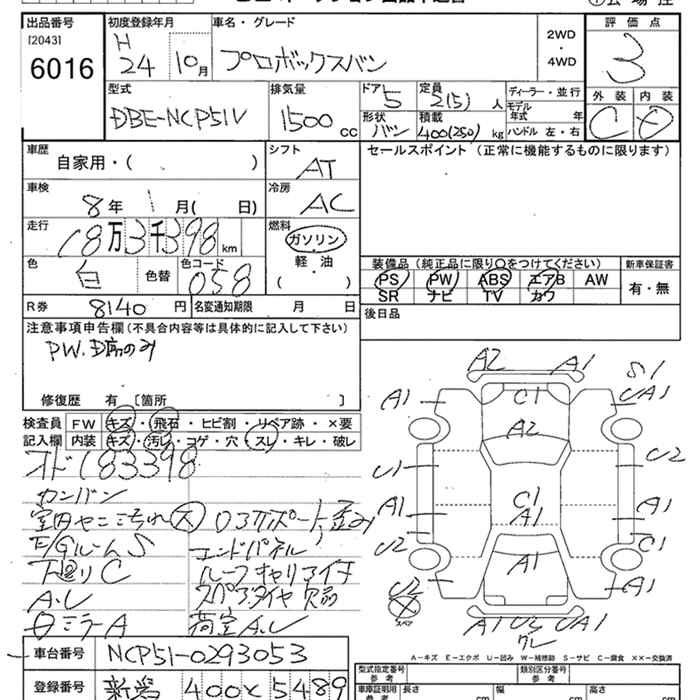 出品番号 初度登録年月 車名・グレード 評価点
[2043] H 24年 10月 プロボックスバン 2WD・4WD 3
6016
型式 排気量 ドア 5 定員 2(5)人 ディーラー・並行 外装 内装
DBE-NCP51V 1500cc 形状 バン 積載 400(250)kg モデル年式 年 C
ハンドル 左・右
車歴 自家用・( ) シフト AT セールスポイント (正常に機能するものに限ります)
車検 8年 1月( 日) 冷房 AC
走行 18万3千398km 燃料 ガソリン 軽・油 ( )
色 白 色替 色コード 058 装備品 (純正品に限り○をつけてください) 新車保証書
PS PW ABS エアB AW 有・無
SR ナビ TV カワ
R券 8140円 名変通知期限 月 日 後日品
注意事項申告欄 (不具合内容等は具体的に記入して下さい)
PW.D席のみ
修復歴 有 [箇所 ]
検査員 FW キズ・飛石・ヒビ割・リペア跡・×要
記入欄 内装 キズ・汚レ・コゲ・穴・スレ・キレ・破レ
オド183398
カンバン
室内ヤニ汚れ大 コアサポート歪み
E/GルームS エンドパネル
下廻りC ルーフキャリアイチ
A.U スペアタイヤ欠品
ミラーA 荷室A.U
A2 A1 S1
A1 C1 UA1
A2
U1 U2
C1
A1 A1 A1
U2 C1
A1
U2 A1
スペア A1 U2 UA1
ワレ
A-キズ E-エクボ U-凹み W-補修跡 S-サビ C-腐食 ××-交換済
車台番号 NCP51-0293053
型式指定番号 参考 類別区分番号 参考
登録番号 新潟 400 × 5489
車庫証明用 参考 長さ cm 幅 cm 高さ cm